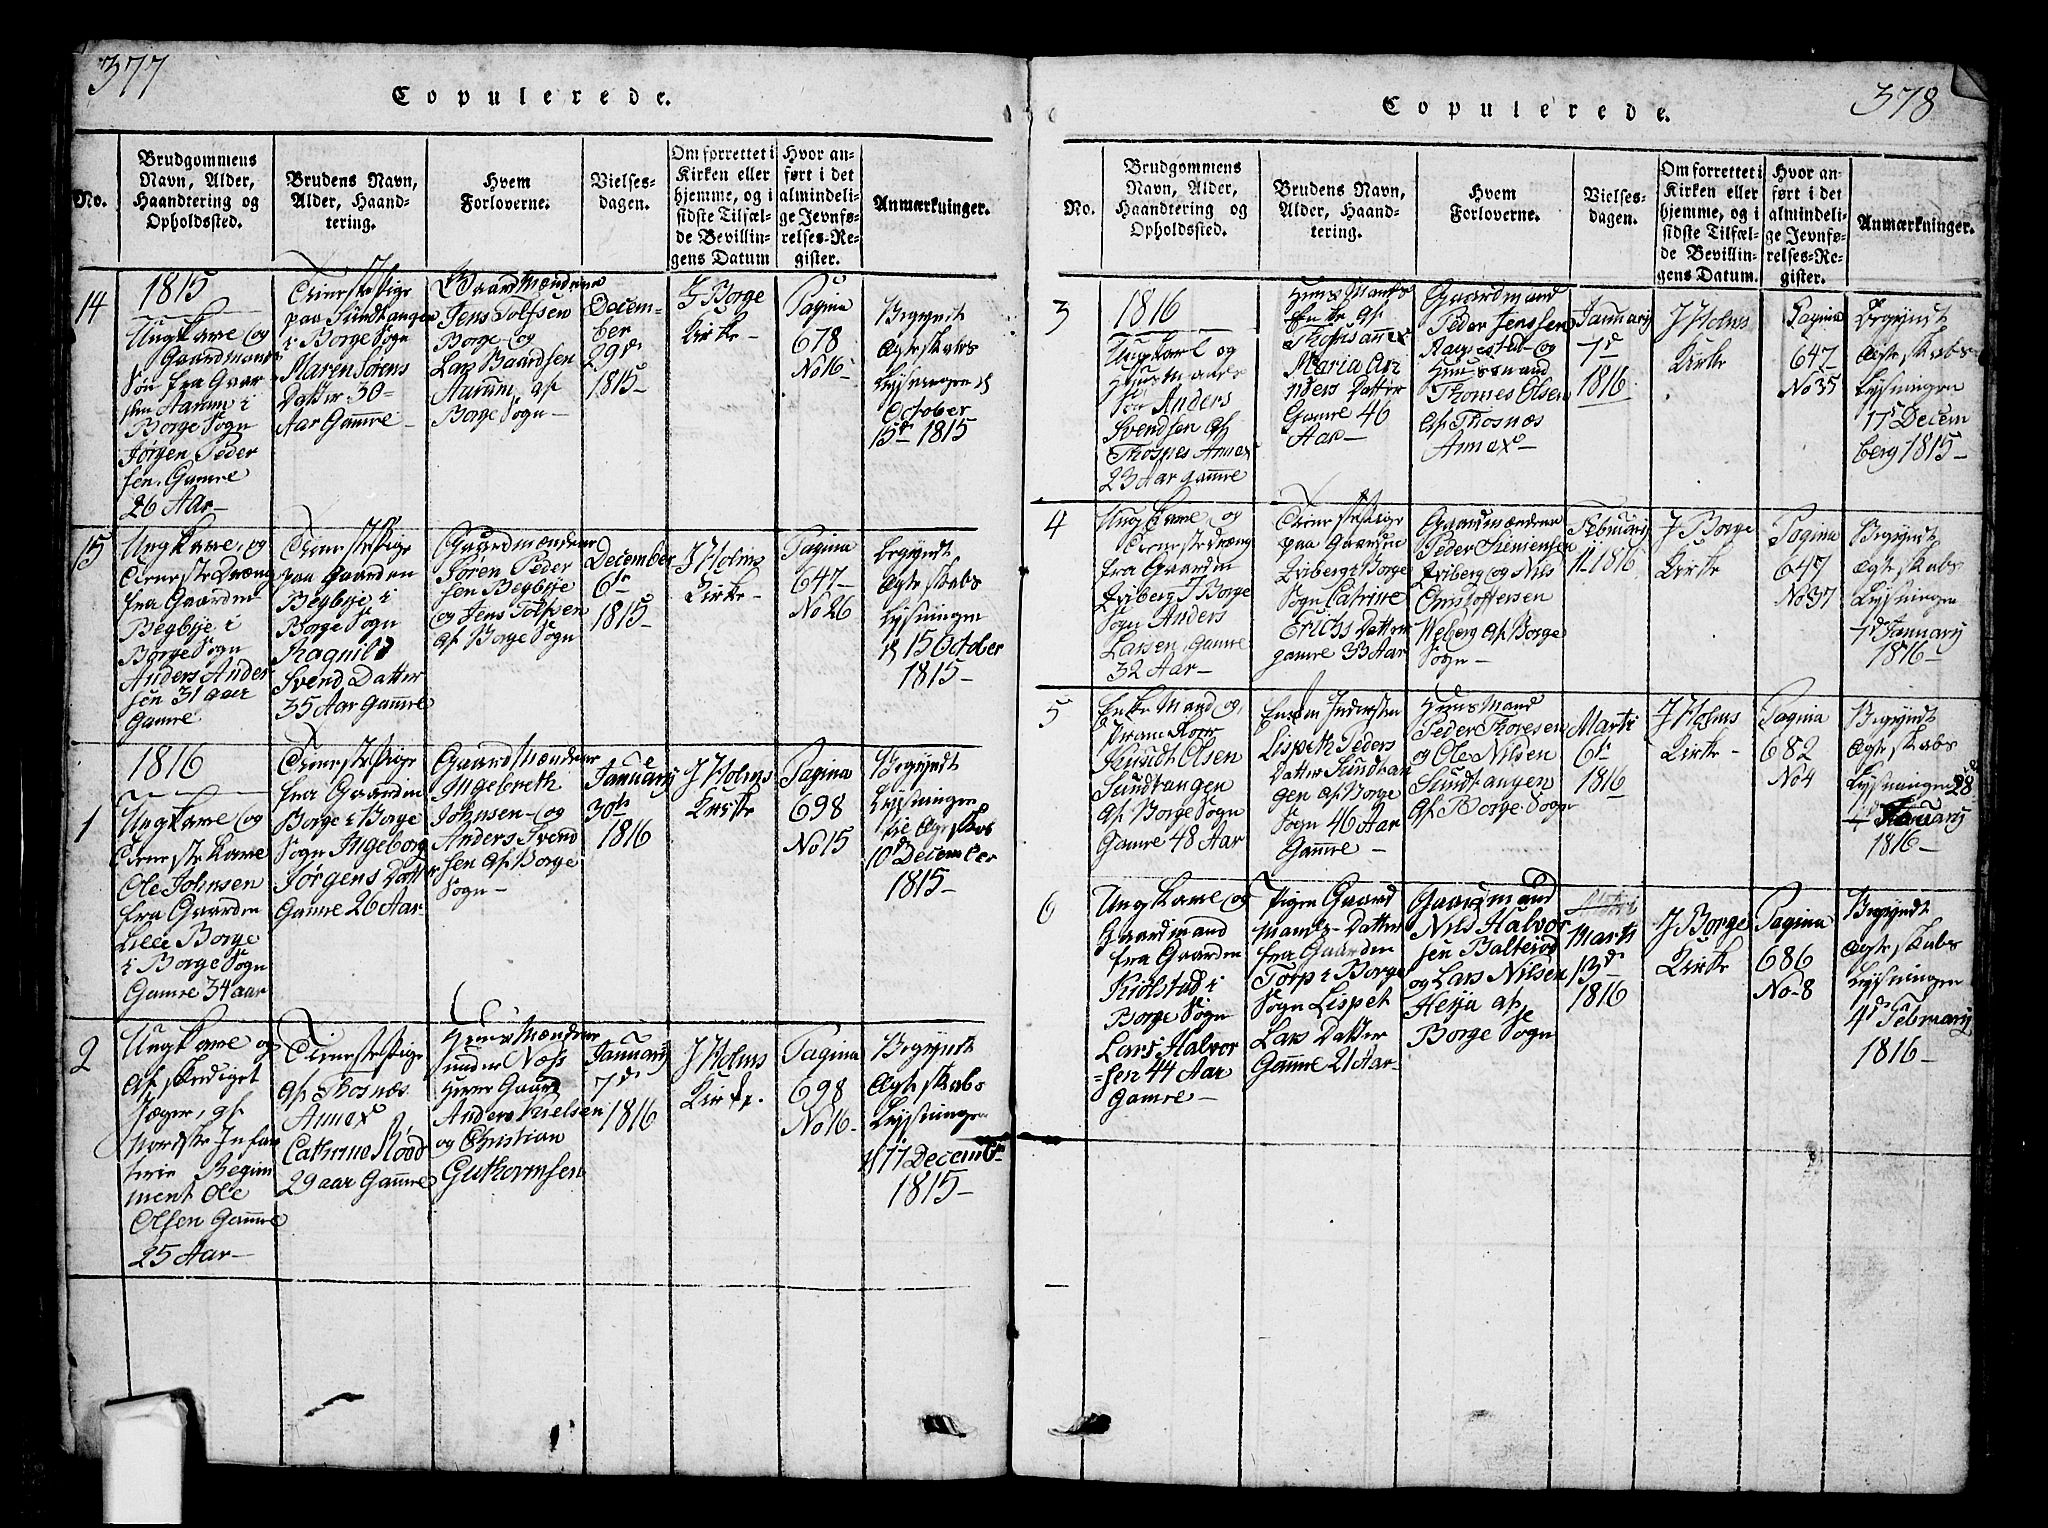 377
Copulerede.
No.
Brudgommens
Navn, Alder,
Haandtering og
Opholdssted.
Brudens Navn,
Alder, Haand-
tering.
Hvem
Forloverne.
Vielses-
dagen.
Om forrettet i
Kirken eller
hjemme, og i
sidste Tilfæl-
de Bevillin-
gens Datum
Hvor an-
ført i det
almindeli-
ge Jevnfø-
relses-Re-
gister.
Anmærkninger.
14
1815
Ungkarl og
Gaardmands
Søn fra Gaar
den Aarum i
Borge Sogn
Jørgen Peder
sen Gamle
26 Aar
Tieneste Pige
paa Sundtangen
i Borge Sogn
Maren Sørens
Datter 30
Aar Gamle
Gaardmændene
Jens Tolfsen
Borge og
Lars Baardsen
Aurum af
Borge Sogn
Decem-
ber
29de
1815
I Borge
Kirke
Pagina
678
No 16
Begyndt
Ægteskabs
Lysningen d
October
15de 1815
15
Ungkarl og
Tieneste Dreng
fra Gaarden
Begbye i
Borge Sogn
Anders Ander
sen 31 aar
Gamle
Tieneste Pige
paa Gaarden
Begbye i
Borge Sogn
Ragnild
Svend Datter
35 Aar Gamle
Gaardmændene
Søren Peder
sen Begbye
og Jens Tolfsen
af Borge Sogn
December
6te
1815
I Holms
Kirke
Pagina
647
No 26
begyndt
Ægteskabs
Lysningen
d 15 October
1815
1816
1
Ungkarl og
Tieneste Karl
Ole Johnsen
fra Gaarden
Lille Borge
i Borge Sogn
Gamle 34 aar
Tieneste Pige
fra Gaarden
Borge i Borge
Sogn Ingeborg
Jørgens Datter
Gamle 26 Aar
Gaardmændene
Ingebreth
Johnsen og
Anders Svend
sen af Borge
Sogn
January
30te
1816
I Holms
Kirke
Pagina
698
No 15
Begyndt
Lysningen
til Ægteskab
10de December
1815
2
Ungkarl og
Afskediget
Jæger af
Nordske Infan
terie Regim
ment Ole
Olsen Gamle
25 Aar
Tieneste Pige
af Thosnæs
Annex
Cathrine Röod
29 aar Gamle
Huusmændene
under
Herre Gaard
Anders Nielsen
og Christian
Guthormsen
January
7de
1816
I Holms
Kirke
Pagina
698
No 16
Begyndt
Ægteskabs
Lysningen
d 17 Decembr
1815
378
Copulerede.
No.
Brudgommens
Navn, Alder,
Haandtering og
Opholdssted.
Brudens Navn,
Alder, Haand-
tering.
Hvem
Forloverne.
Vielses-
dagen.
Om forrettet i
Kirken eller
hjemme, og i
sidste Tilfæl-
de Bevillin-
gens Datum.
Hvor an-
ført i det
almindeli-
ge Jevnfø-
relses-Re-
gister.
Anmærkninger.
3
1816
Ungkarl og
Huusmands
Søn Anders
Svendsen af
Thosnes Annex
23 Aar gamle
Huus Mands
Enke af
Thosn Annex
Maria
Datter
Gamle 46
Aar
Gaardmand
Peder Jenssen
og
Huusmand
Thomes Olsen
af Thosnæs
Annex
January
7de
1816
I Holms
Kirke
Pagina
647
No 35
Begyndt
Ægteskabs
Lysningen
17de Decem
berg 1815
4
Ungkarl og
Tieneste Dreng
fra Gaarden
Qviberg I Borge
Sogn Anders
Larsen Gamle
32 Aar
Tieneste Pige
paa Gaarden
Qviberg i Borge
Sogn Catrine
Erichs Datter
gamle 33 Aar
Gaardmændene
Peder Simensen
Qviberg og Nils
Christoffersen
Weberg af Borge
Sogn
February
11 1816
I Borge
Kirke
Pagina
647
No 37
Begyndt
Ægteskabs
Lysningen
7de January
1816
5
Enke Mand og
Knudt Olsen
Sundtangen
af Borge Sogn
Gamle 48 Aar
Lispeth Peders
Datter Sundtan
gen af Borge
Sogn 46 Aar
Gamle
Huusmand
Peder Thoresen
og Ole Nilsen
Sundtangen
af Borge Sogn
Marti
6te
1816
I Holms
Kirke
Pagina
682
No 4
Begyndt
Ægteskabs
Lysningen 28de
January
1816
6
Ungkarl og
Gaardmand
fra Gaarden
Kiølstad i
Borge Sogn
Lars Halvor
=sen 44 Aar
Gamle
Pigen Gaard
mands Datter
fra Gaarden
Torp i Borge
Sogn Lispet
Lars Datter
Gamle 21 Aar
Gaardmand
Nils Halvor
sen
og Lars Nilsen
af
Borge Sogn
Marti
13de
1816
I Borge
Kirke
Pagina
686
No 8
Begyndt
Ægteskabs
Lysningen
4de February
1816